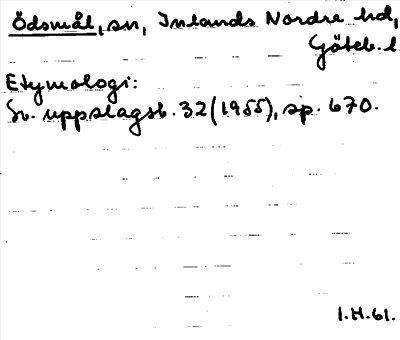 Ödsmål, sn, Inlands Nordre hd,
Göteb. l.
Etymologi:
Sv. uppslagsb. 32 (1955), sp. 670.
I.H.61.